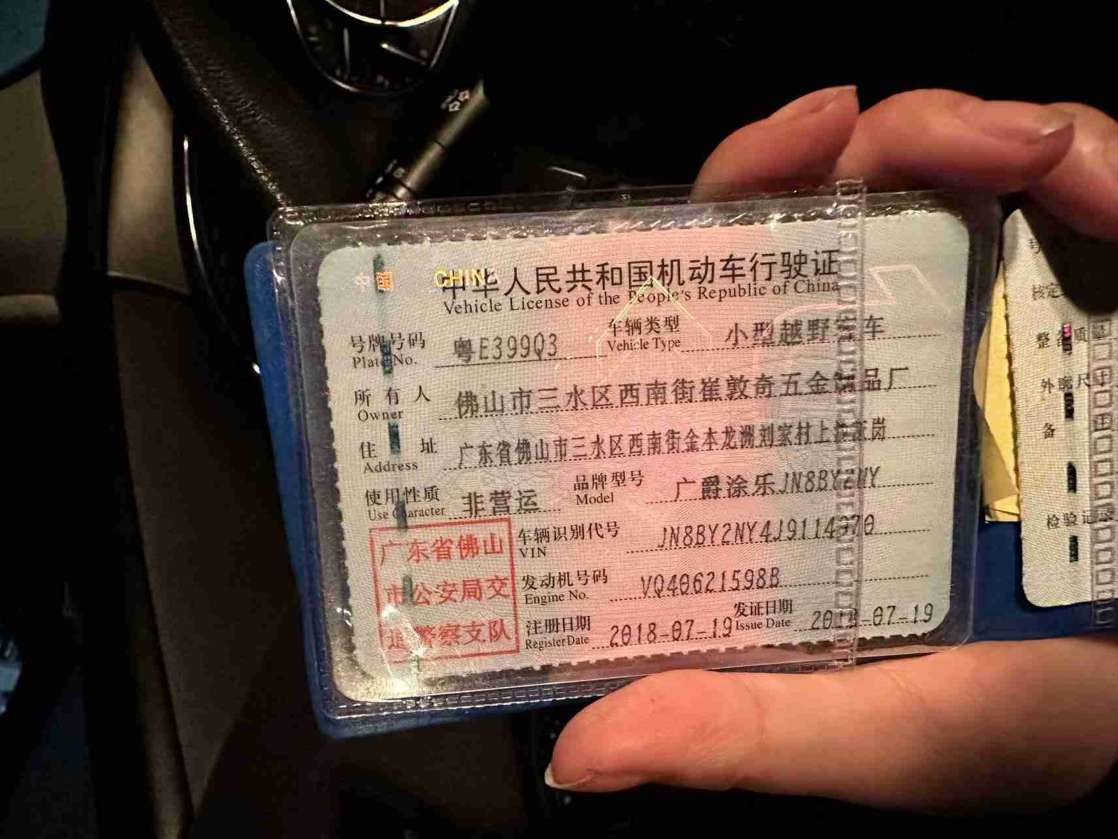 中国 CHINA
中华人民共和国机动车行驶证
Vehicle License of the People's Republic of China
号牌号码 粤E399Q3 车辆类型 小型越野客车
Plate No. Vehicle Type
所有人 佛山市三水区西南街崔敦奇五金制品厂
Owner
住址 广东省佛山市三水区西南街金本龙洲刘家村上
Address
使用性质 非营运 品牌型号 广爵涂乐JN8BY2NY
Use Character Model
广东省佛山
市公安局交
通警察支队
车辆识别代号
VIN
发动机号码 VQ40621598B
Engine No.
注册日期 2018-07-19 发证日期 2018-07-19
Register Date Issue Date
号
核定
整备质
外廓尺
备
检验记